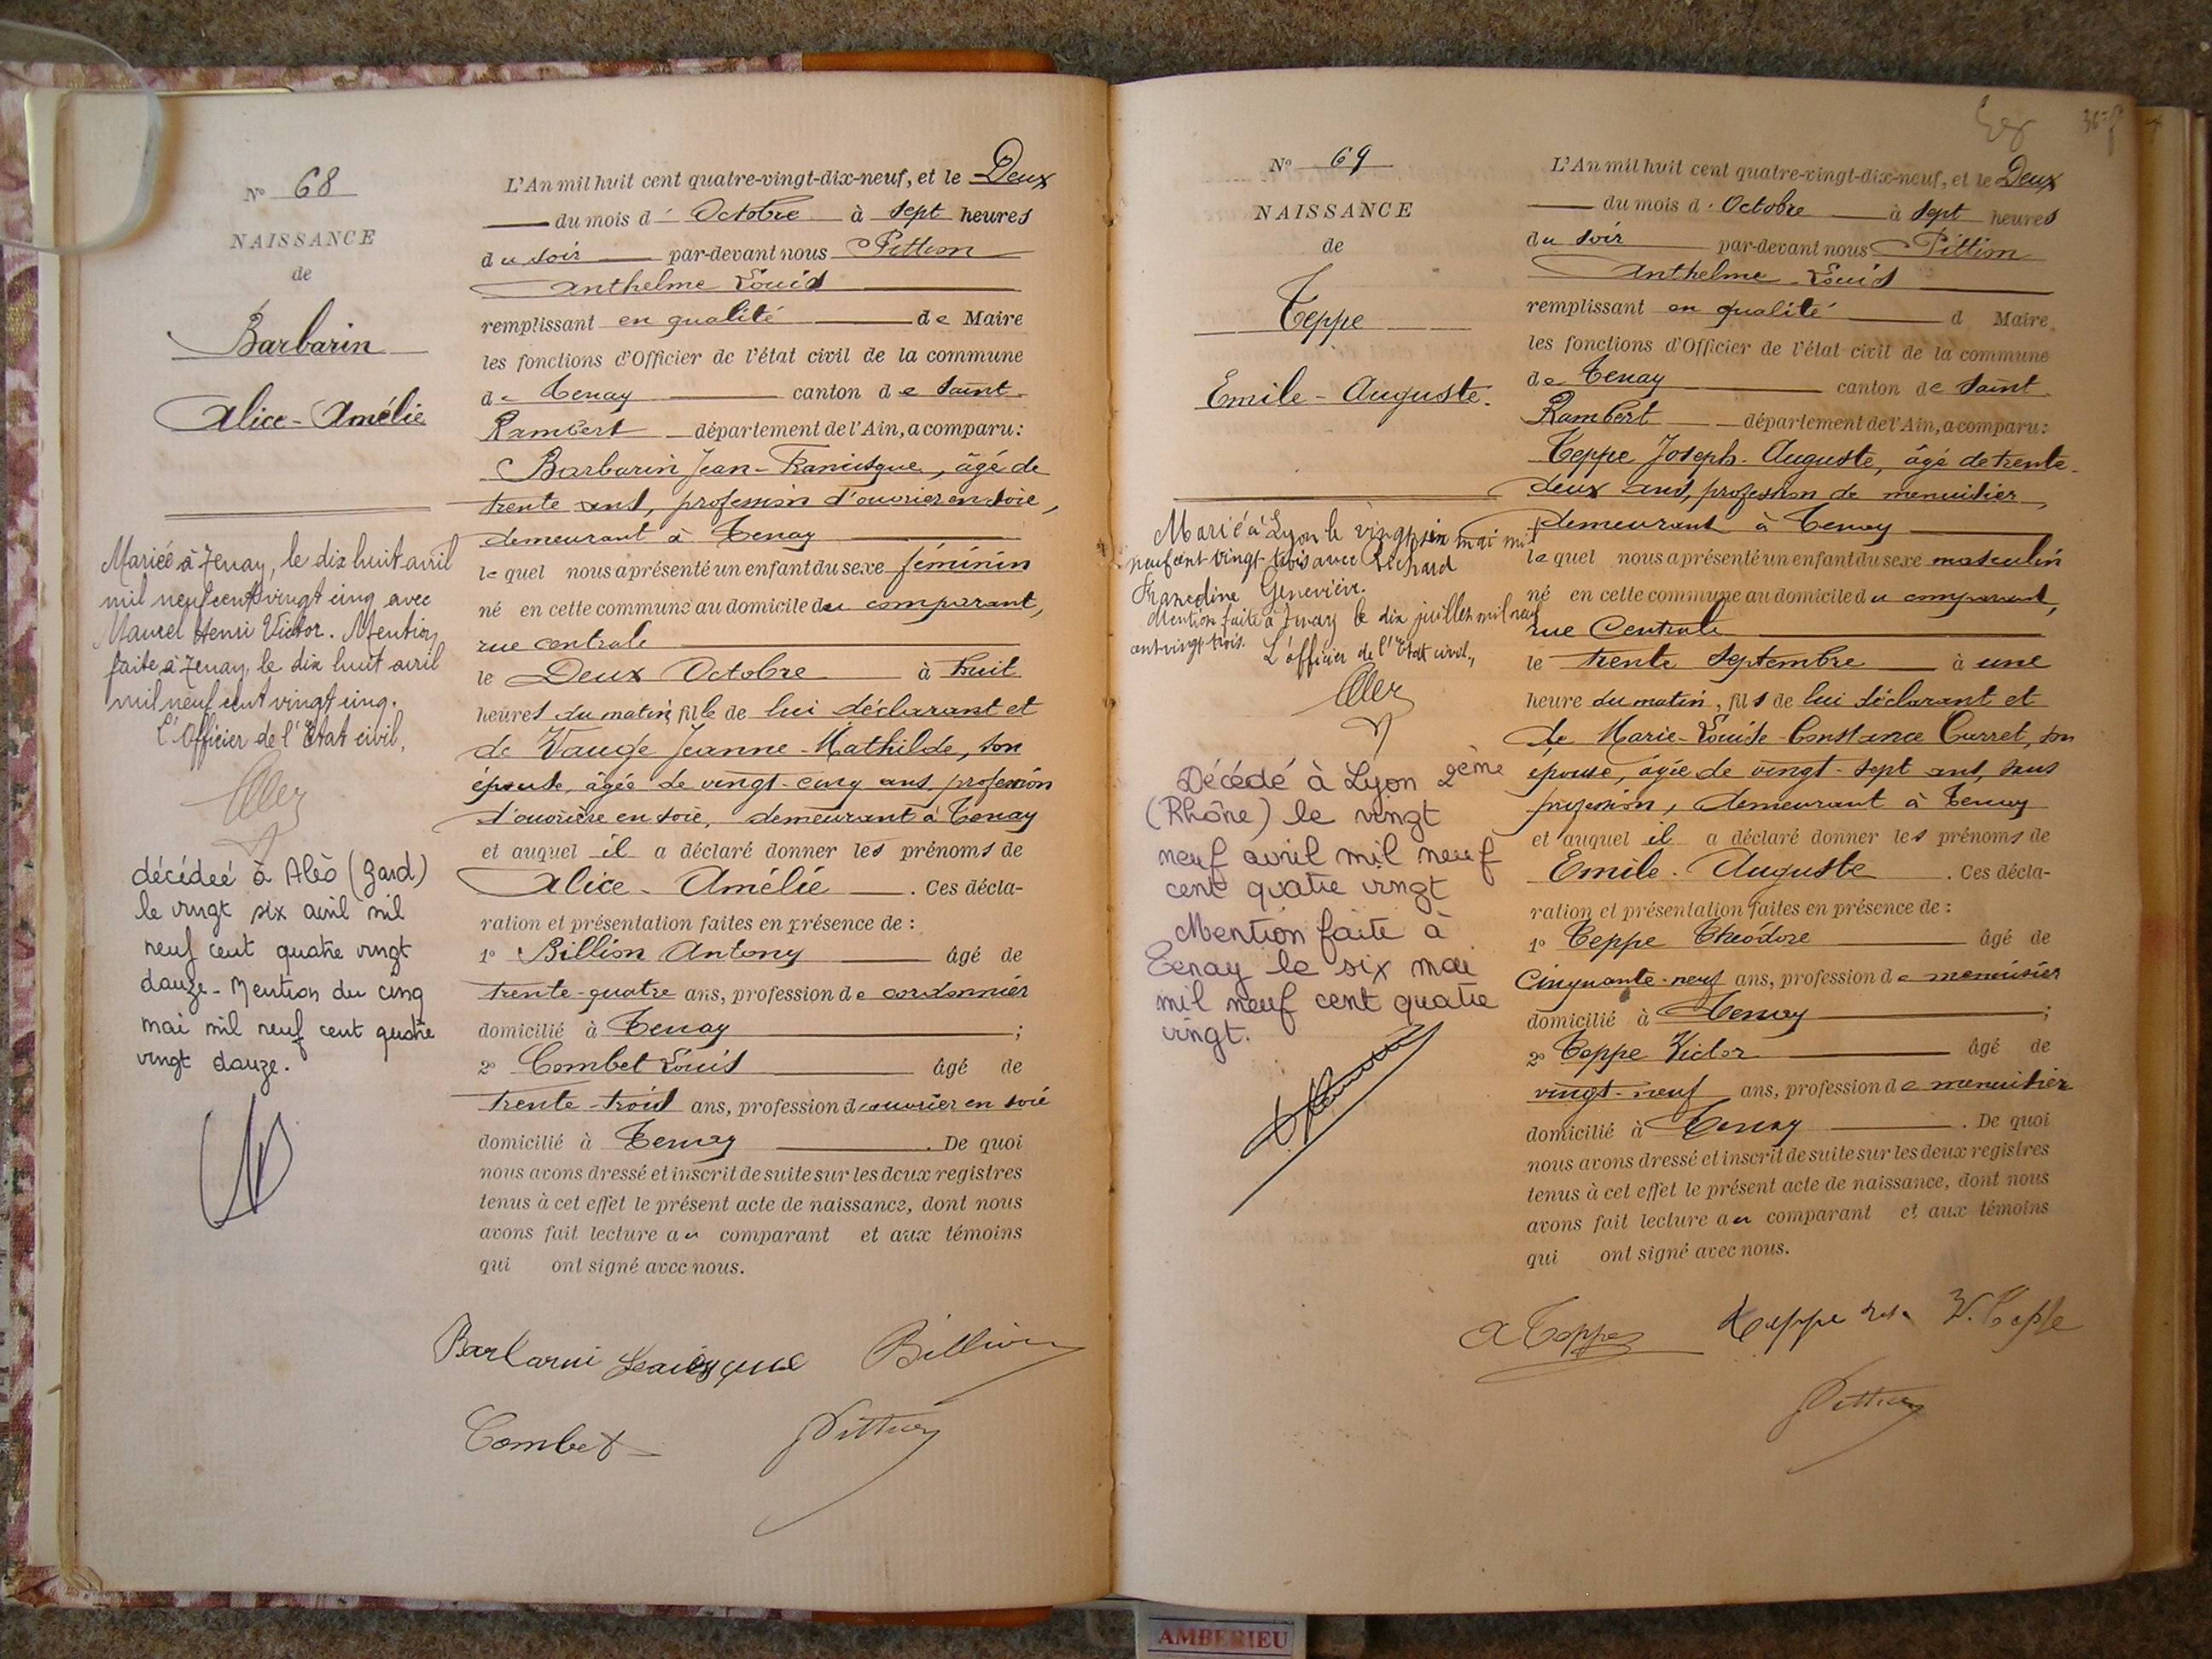 N° 68
NAISSANCE
de
Barbarin
Alice-Amélie
Mariée à Tenay, le dix huit avril
mil neuf cent vingt cinq avec
Maurel Henri Victor. Mention
faite à Tenay, le dix huit avril
mil neuf cent vingt cinq.
L'Officier de l'Etat civil,
décédeé à Alès (Gard)
le vingt six avril mil
neuf cent quatre vingt
douze - Mention du cinq
mai mil neuf cent quatre
vingt douze.
L'An mil huit cent quatre-vingt-dix-neuf, et le Deux
du mois d' Octobre à sept heures
du soir par-devant nous Pittion
Anthelme Louis
remplissant en qualité de Maire
les fonctions d'Officier de l'état civil de la commune
de Tenay canton de Saint
Rambert département de l'Ain, a comparu:
Barbarin Jean-Francisque, âgé de
trente ans, profession d'ouvrier en soie,
demeurant à Tenay
lequel nous a présenté un enfant du sexe féminin
né en cette commune au domicile du comparant,
rue centrale
le Deux Octobre à huit
heures du matin, fille de lui déclarant et
de Vauge Jeanne-Mathilde, son
épouse, âgée de vingt-cinq ans, profession
d'ouvrière en soie, demeurant à Tenay
et auquel il a déclaré donner les prénoms de
Alice - Amélie. Ces décla-
ration et présentation faites en présence de :
1° Billion Antony âgé de
trente-quatre ans, profession de cordonnier
domicilié à Tenay ;
2° Combet Louis âgé de
trente-trois ans, profession d'ouvrier en soie
domicilié à Tenay. De quoi
nous avons dressé et inscrit de suite sur les deux registres
tenus à cet effet le présent acte de naissance, dont nous
avons fait lecture au comparant et aux témoins
qui ont signé avec nous.
Barbarin Francisque Billion
Combet Pittion
N° 69
NAISSANCE
de
Teppe
Emile-Auguste.
Marié à Lyon le vingt six mai mil
neuf cent vingt-trois avec Richard
Francoline Geneviève.
Mention faite à Tenay le dix juillet mil neuf
cent vingt-trois. L'officier de l'Etat civil,
Décédé à Lyon 2ème
(Rhône) le vingt
neuf avril mil neuf
cent quatre vingt
Mention faite à
Tenay le six mai
mil neuf cent quatre
vingt.
L'An mil huit cent quatre-vingt-dix-neuf, et le Deux
du mois d' Octobre à sept heures
du soir par-devant nous Pittion
Anthelme-Louis
remplissant en qualité d Maire
les fonctions d'Officier de l'état civil de la commune
de Tenay canton de Saint
Rambert département de l'Ain, a comparu:
Teppe Joseph-Auguste, âgé de trente-
deux ans, profession de menuisier
demeurant à Tenay
lequel nous a présenté un enfant du sexe masculin
né en cette commune au domicile du comparant,
rue Centrale
le trente Septembre à une
heure du matin, fils de lui déclarant et
de Marie-Louise-Constance Curret, son
épouse, âgée de vingt-sept ans, sans
profession, demeurant à Tenay
et auquel il a déclaré donner les prénoms de
Emile-Auguste. Ces décla-
ration et présentation faites en présence de :
1° Teppe Théodore âgé de
cinquante-neuf ans, profession de menuisier
domicilié à Tenay ;
2° Teppe Victor âgé de
vingt-neuf ans, profession de menuisier
domicilié à Tenay. De quoi
nous avons dressé et inscrit de suite sur les deux registres
tenus à cet effet le présent acte de naissance, dont nous
avons fait lecture au comparant et aux témoins
qui ont signé avec nous.
A Teppe Teppe V. Teppe
Pittion
AMBERIEU